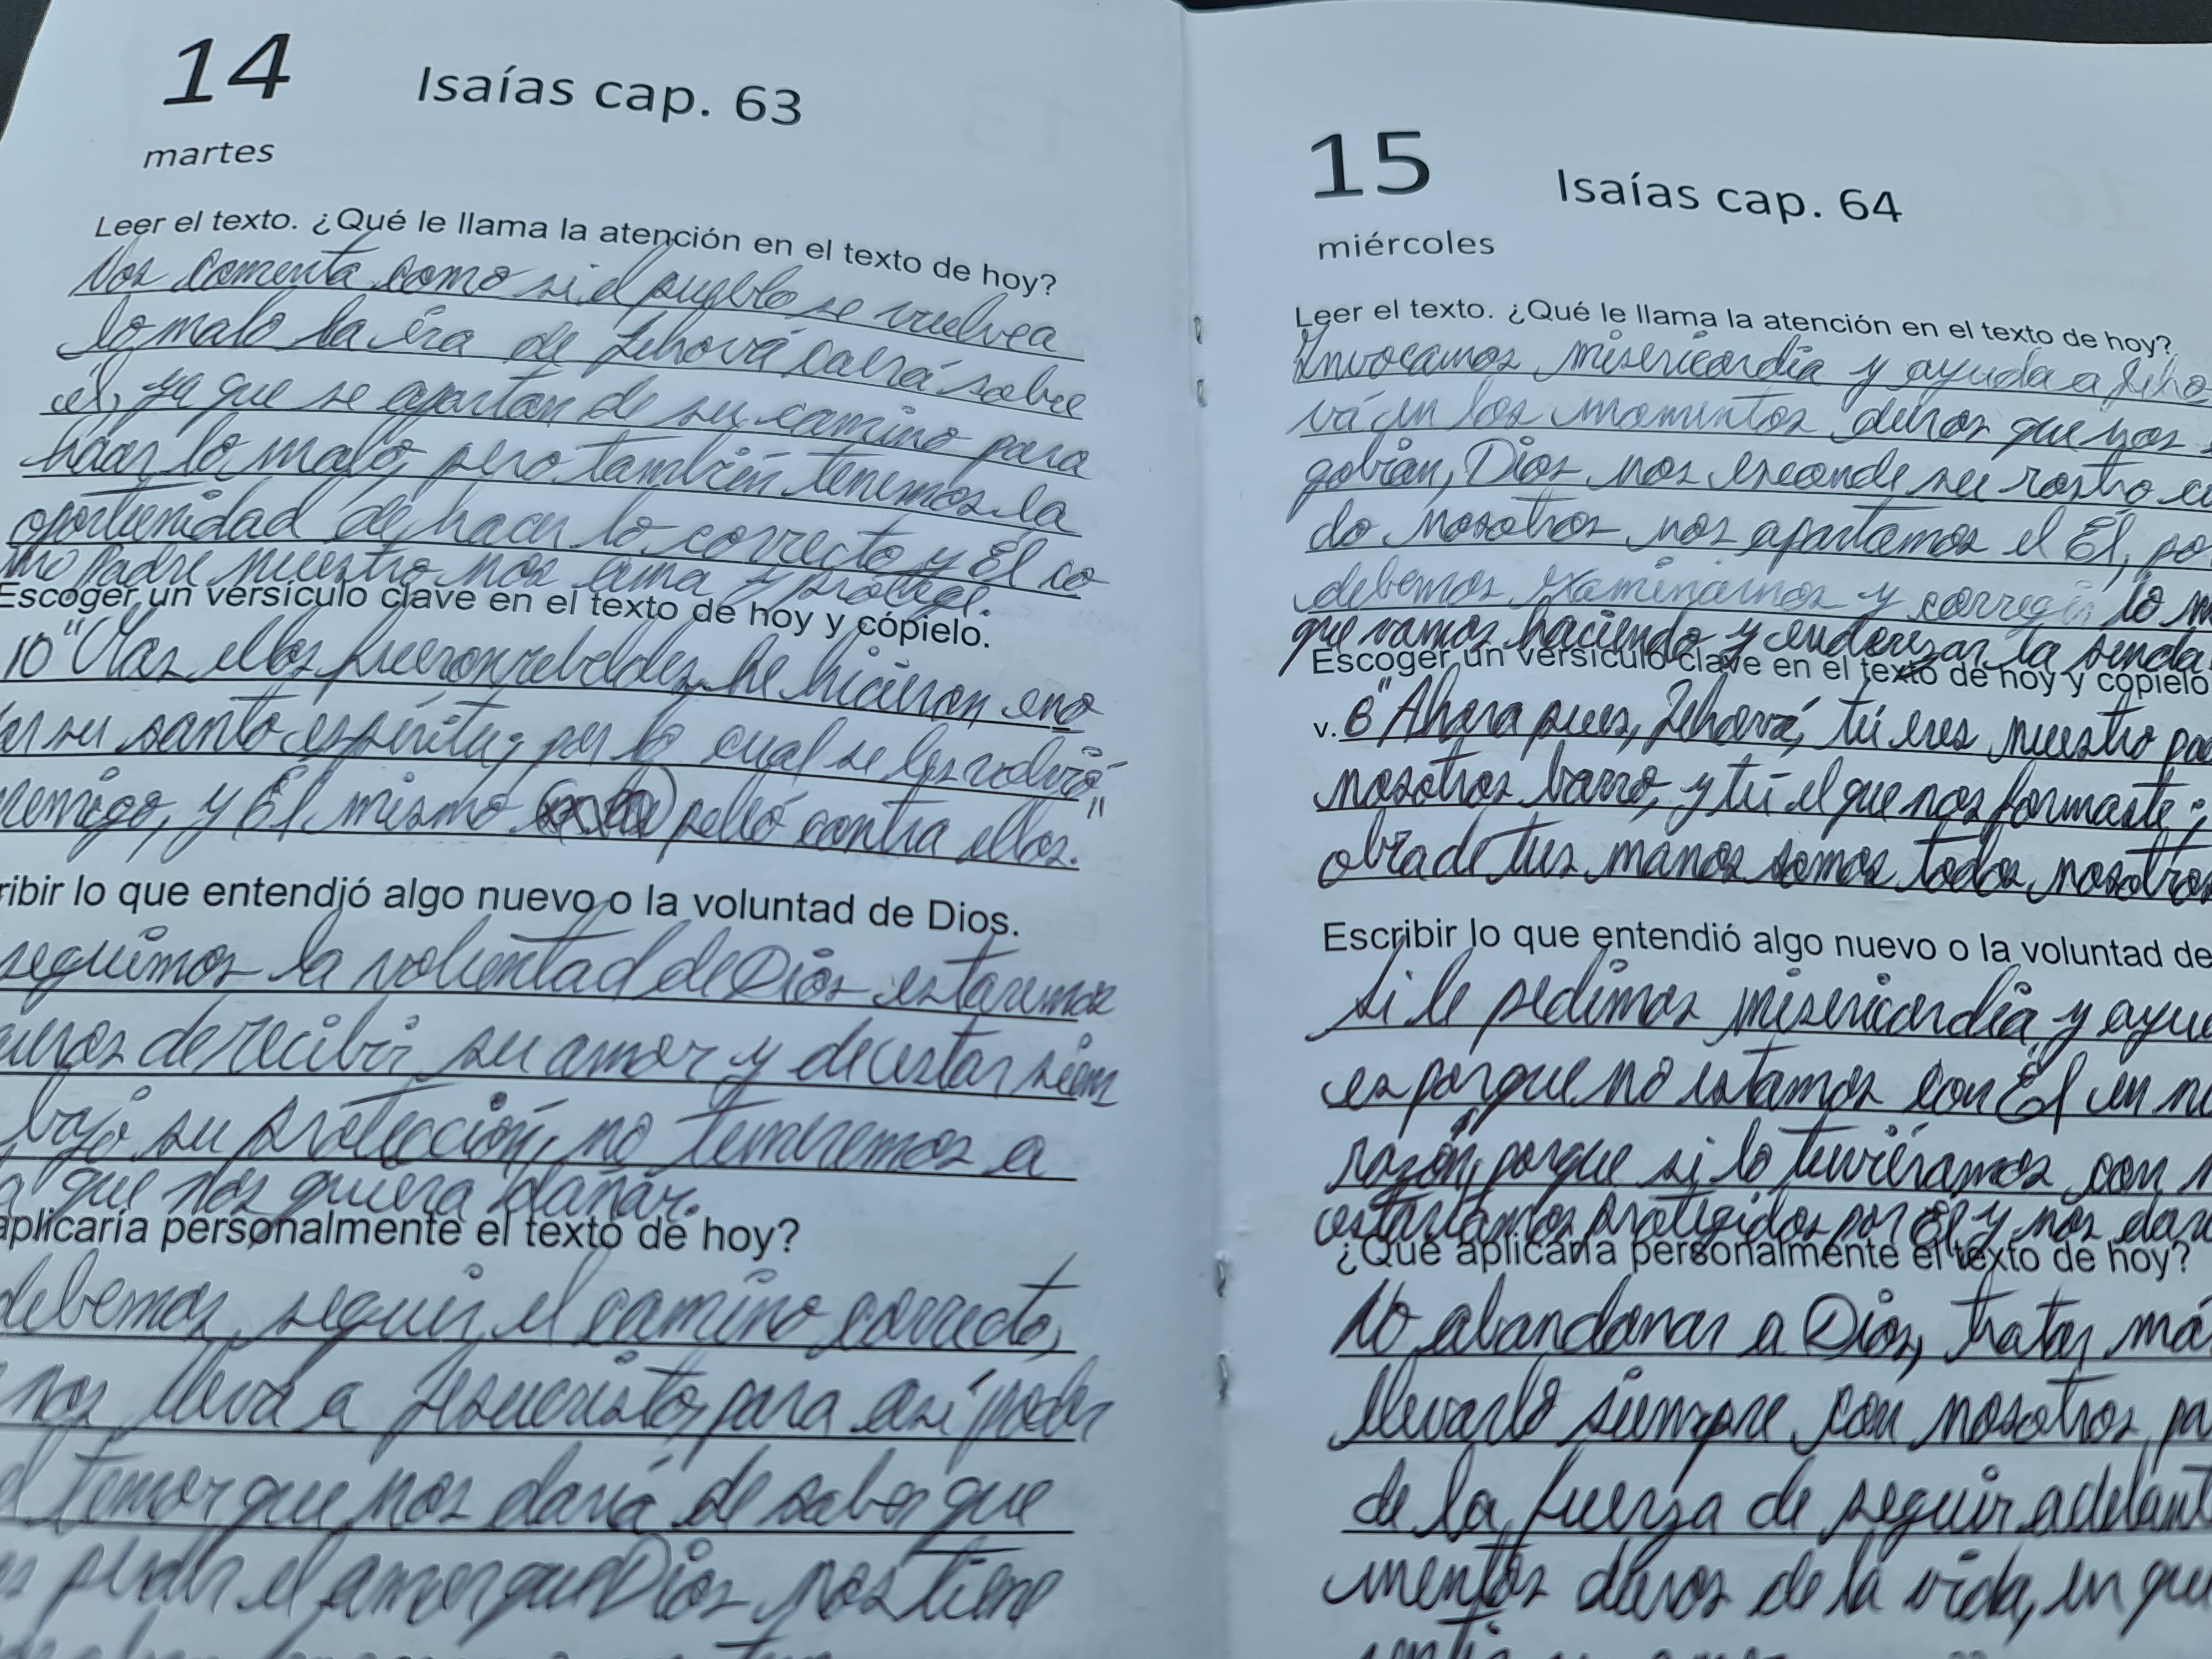 14
Isaías cap. 63
martes
Leer el texto. ¿Qué le llama la atención en el texto de hoy?
Nos comenta como si el pueblo se vuelve a
lo malo la ira de Jehová caerá sobre
él, ya que se apartan de su camino para
hacer lo malo, pero también tenemos la
oportunidad de hacer lo correcto y Él co
mo Padre nuestro nos ama y protege.
Escoger un versículo clave en el texto de hoy y cópielo.
10 "Mas ellos fueron rebeldes, he hicieron eno
ar su santo espíritu; por lo cual se les volvió
nemigo, y Él mismo peleó contra ellos."
ribir lo que entendió algo nuevo o la voluntad de Dios.
seguimos la voluntad de Dios estaremos
uros de recibir su amor y de estar siem
bajo su protección, no temeremos a
a que nos quiera dañar.
aplicaría personalmente el texto de hoy?
debemos seguir el camino correcto,
nos lleva a Jesucristo, para así poder
el temor que nos daría de saber que
perder el amor que Dios nos tiene
15
Isaías cap. 64
miércoles
Leer el texto. ¿Qué le llama la atención en el texto de hoy?
Invocamos misericordia y ayuda a Jeho
vá en los momentos duros que nos
gobian, Dios nos esconde su rostro cu
do nosotros nos apartamos el Él, po
debemos examinarnos y corregir lo m
que vamos haciendo y enderezar la senda
Escoger un versículo clave en el texto de hoy y cópielo
v. 8 "Ahora pues, Jehová, tú eres nuestro pad
nosotros barro, y tú el que nos formaste;
obra de tus manos somos todos nosotros
Escribir lo que entendió algo nuevo o la voluntad de
Si le pedimos misericordia y ayu
es porque no estamos con Él en nu
razón, porque si lo tuviéramos con n
estaríamos protegidos por Él y nos dar
¿Qué aplicaría personalmente el texto de hoy?
No abandonar a Dios, tratar má
llevarlo siempre con nosotros pa
de la fuerza de seguir adelant
mentos duros de la vida, en que